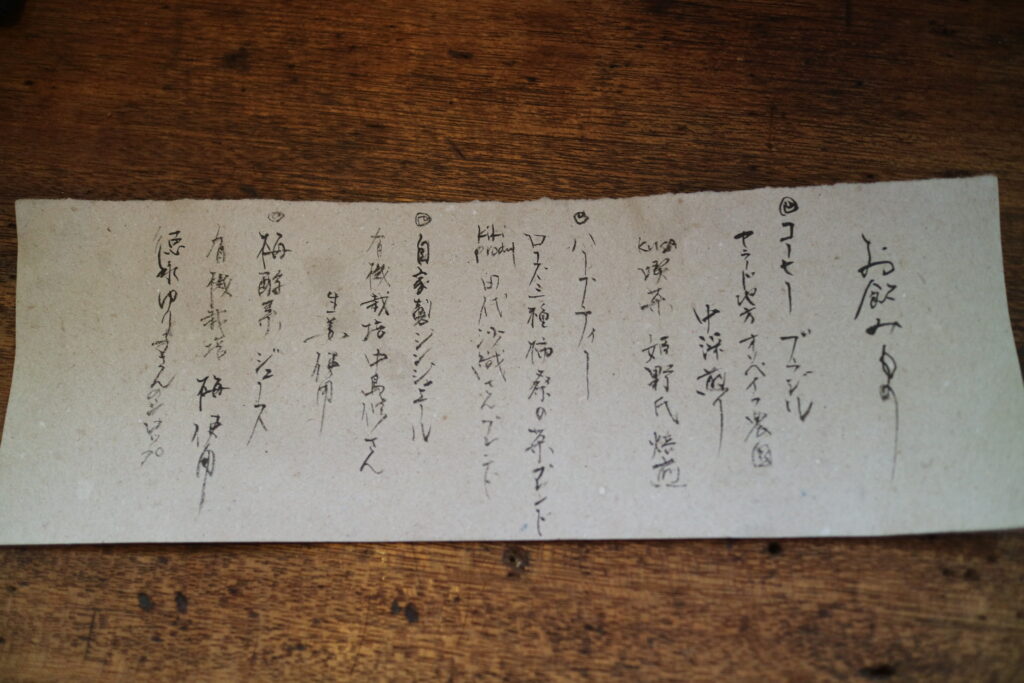 お飲みもの
コーヒー ブラジル
セラード地方 オーベイつ農園
中深煎り
kusa 喫茶 姫野氏 焙煎
ハーブティー
ローズ三種 柿 桑の葉ブレンド
kiki product 田代沙織さんブレンド
自家製ジンジャエール
有機栽培 中島さん
生姜使用
梅酵素ジュース
有機栽培 梅使用
徳永ゆりさんのシロップ